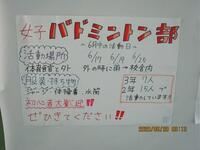 女子 バドミントン部
〜6月の活動日〜
活動場所
6/17 6/19 6/20
外の時に雨→校舎内
服装・持ち物
3年 7人
2年 15人で
活動しています!!
ジャージ 体操着 水筒
初心者大歓迎!!
ぜひきてください!!